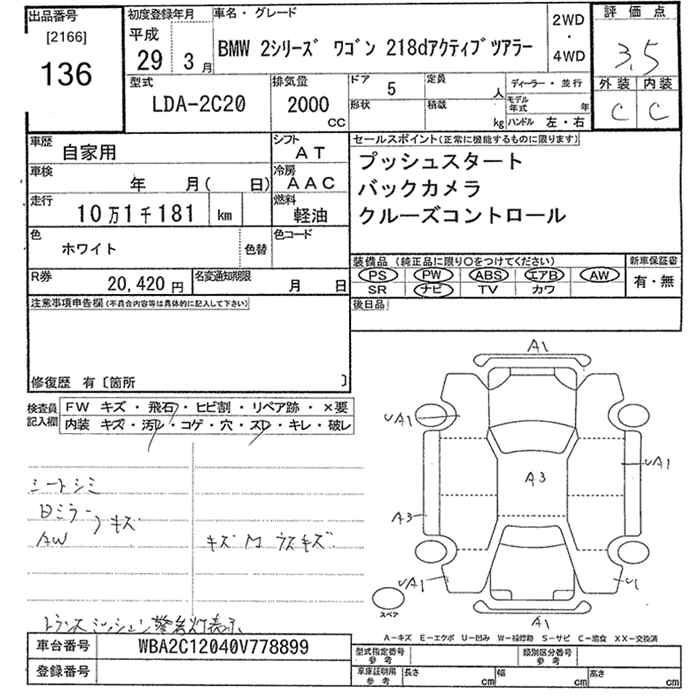 出品番号
[2166]
136
初度登録年月
平成
29 3 月
車名・グレード
BMW 2シリーズ ワゴン 218dアクティブツアラー
2WD
・
4WD
評価点
3.5
外装 内装
C C
型式
LDA-2C20
排気量
2000
CC
ドア
5
定員
人
形状
積載
kg
ディーラー・並行
モデル年式 年
ハンドル 左・右
車歴
自家用
シフト
AT
車検
年 月( 日)
冷房
AAC
走行
10万1千181 km
燃料
軽油
色
ホワイト
色替
色コード
R券
20,420 円
名変通知期限
月 日
セールスポイント(正常に機能するものに限ります)
プッシュスタート
バックカメラ
クルーズコントロール
装備品 (純正品に限り○をつけてください)
PS PW ABS エアB AW
SR ナビ TV カワ
新車保証書
有・無
後日品
注意事項申告欄(不具合内容等は具体的に記入して下さい)
修復歴 有〔箇所 〕
検査員
記入欄
FW キズ・飛石・ヒビ割・リペア跡・×要
内装 キズ・汚レ・コゲ・穴・スレ・キレ・破レ
シートシミ
AW
キズ
トランスミッション警告灯表示
A1
UA1
UA1
A3
A3
UA1
U1
A1
スペア
A-キズ E-エクボ U-凹み W-補修跡 S-サビ C-腐食 XX-交換済
車台番号
WBA2C12040V778899
登録番号
型式指定番号
参考
類別区分番号
参考
車庫証明用
参考
長さ cm
幅 cm
高さ cm